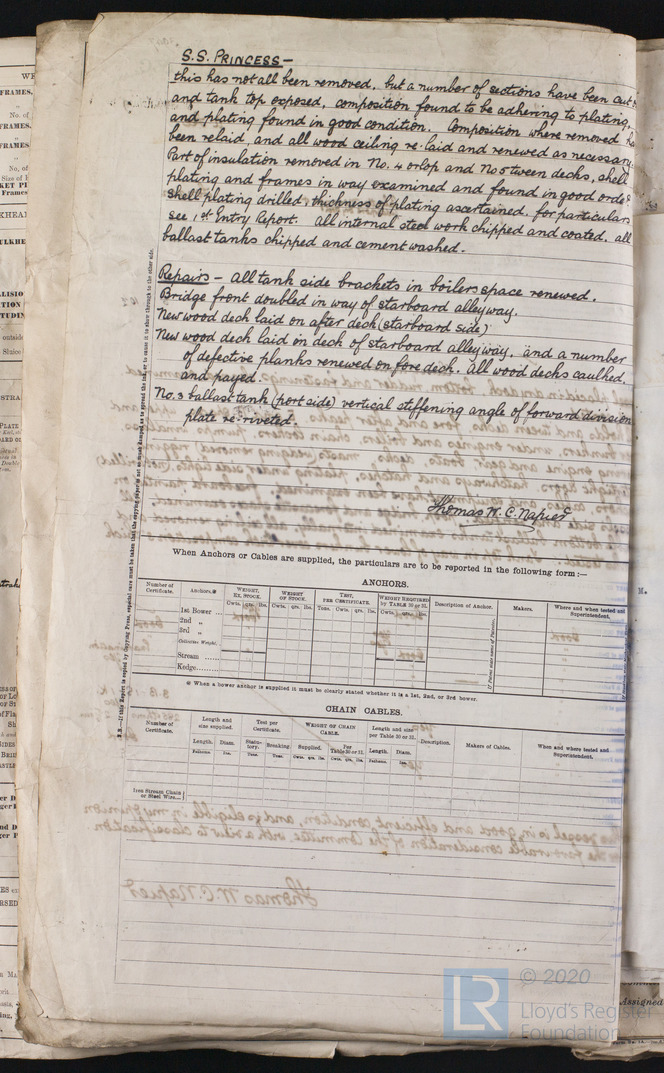 S.S. PRINCESS —
this has not all been removed, but a number of sections have been cut
and tank top exposed, composition found to be adhering to plating,
and plating found in good condition. Composition where removed
been relaid, and all wood ceiling re-laid and renewed as necessary.
Part of insulation removed in No. 4 orlop and No 5 tween decks, shell
plating and frames in way examined and found in good order
Shell plating drilled, thickness of plating ascertained, for particulars
see 1st Entry Report. All internal steel work chipped and coated, all
ballast tanks chipped and cement washed.
Repairs — All tank side brackets in boiler space renewed.
Bridge front doubled in way of starboard alleyway.
New wood deck laid on after deck (starboard side)
New wood deck laid in deck of starboard alleyway, and a number
of defective planks renewed on fore deck. All wood decks caulked,
and payed.
No. 3 ballast tank (port side) vertical stiffening angle of forward division
plate re-riveted.
Thomas W. C. Napier
When Anchors or Cables are supplied, the particulars are to be reported in the following form:—
ANCHORS.
Number of Certificate. Anchors.* WEIGHT, EX. STOCK. WEIGHT OF STOCK. TEST, PER CERTIFICATE. WEIGHT REQUIRED by TABLE 30 or 31. Description of Anchor. Makers. Where and when tested and Superintendent.
Cwts. qrs. lbs. Cwts. qrs. lbs. Tons. Cwts. qrs. lbs. Cwts. qrs. lbs.
1st Bower ...
2nd "
3rd "
Collective Weight.
Stream ......
Kedge......
* When a bower anchor is supplied it must be clearly stated whether it is a 1st, 2nd, or 3rd bower.
CHAIN CABLES.
Number of Certificate. Length and size supplied. Test per Certificate. WEIGHT OF CHAIN CABLE. Length and size per Table 30 or 31. Description. Makers of Cables. When and where tested and Superintendent.
Length. Diam. Statutory. Breaking. Supplied. Per Table 30 or 31. Length. Diam.
Fathoms. Ins. Tons. Tons. Cwts. qrs. lbs. Cwts. qrs. lbs. Fathoms. Ins.
Iron Stream Chain or Steel Wire...
LR
© 2020
Lloyd's Register
Foundation
Assigned